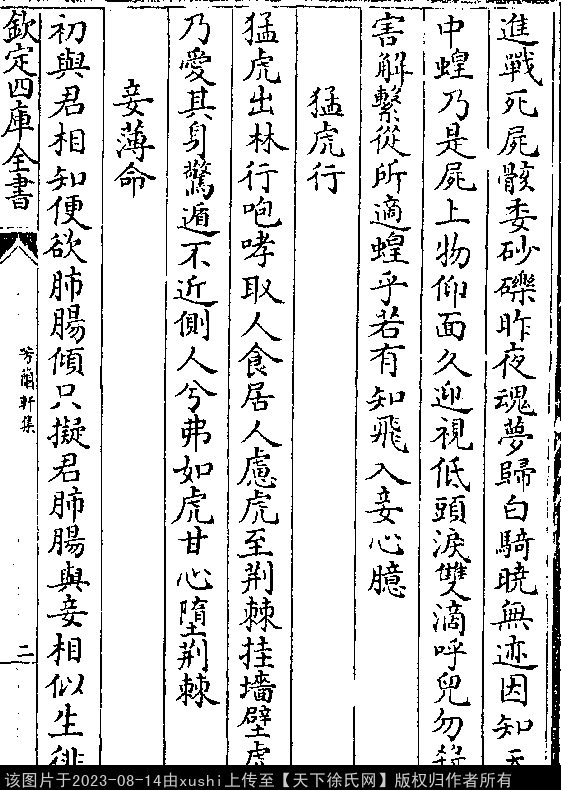 進戰死屍骸委砂礫昨夜魂夢歸白騎曉無迹因知
中蝗乃是屍上物仰面久迎視低頭淚雙滴呼兒勿
害解繫從所適蝗乎若有知飛入妾心臆
猛虎行
猛虎出林行咆哮取人食居人慮虎至荆棘挂墻壁虎
乃愛其身驚遁不近側人兮弗如虎甘心墮荆棘
妾薄命
初與君相知便欲肺腸傾只擬君肺腸與妾相似生
欽定四庫全書
芳蘭軒集
二
该图片于2023-08-14由xushi上传至【天下徐氏网】版权归作者所有